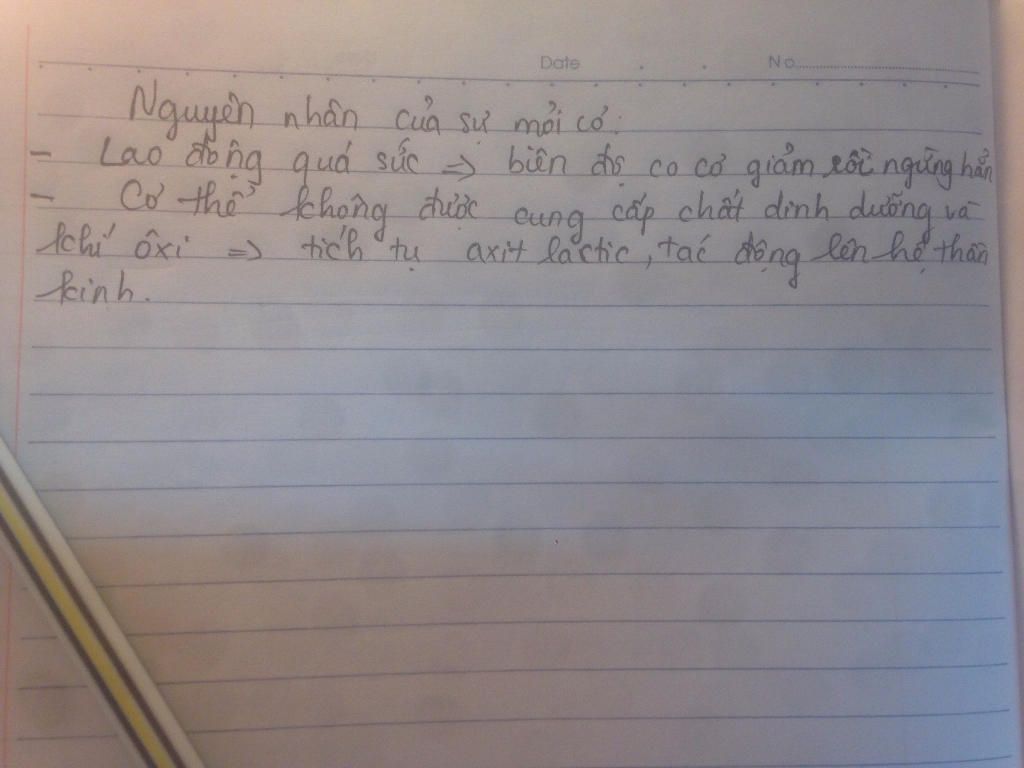 Date No
Nguyên nhân của sự mỏi cơ:
- Lao động quá sức => biên độ co cơ giảm rồi ngừng hẳn
- Cơ thể không được cung cấp chất dinh dưỡng và
khí ôxi => tích tụ axit lactic, tác động lên hệ thần
kinh.